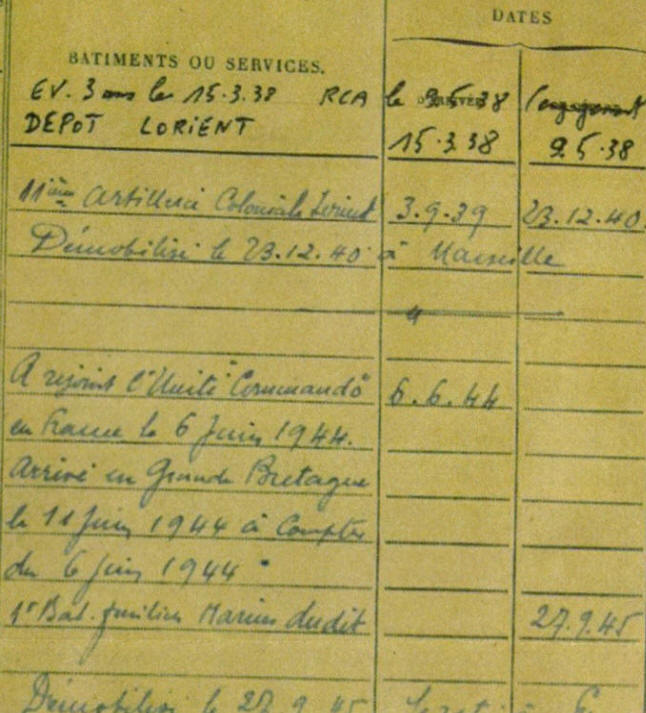 DATES
BATIMENTS OU SERVICES.
EV. 3 ans le 15.3.38 RCA le 9.5.38
DEPOT LORIENT 15.3.38 9.5.38
11ième Artillerie Coloniale Lorient 3.9.39 23.12.40
Démobilisé le 23.12.40 à Marseille
A rejoint l'Unité "Commando" 6.6.44
en France le 6 Juin 1944.
Arrivé en Grande Bretagne
le 11 Juin 1944 à Compter
du 6 Juin 1944
1er Bat. fusilier Marins dudit 27.9.45
Démobilisé le 27.9.45